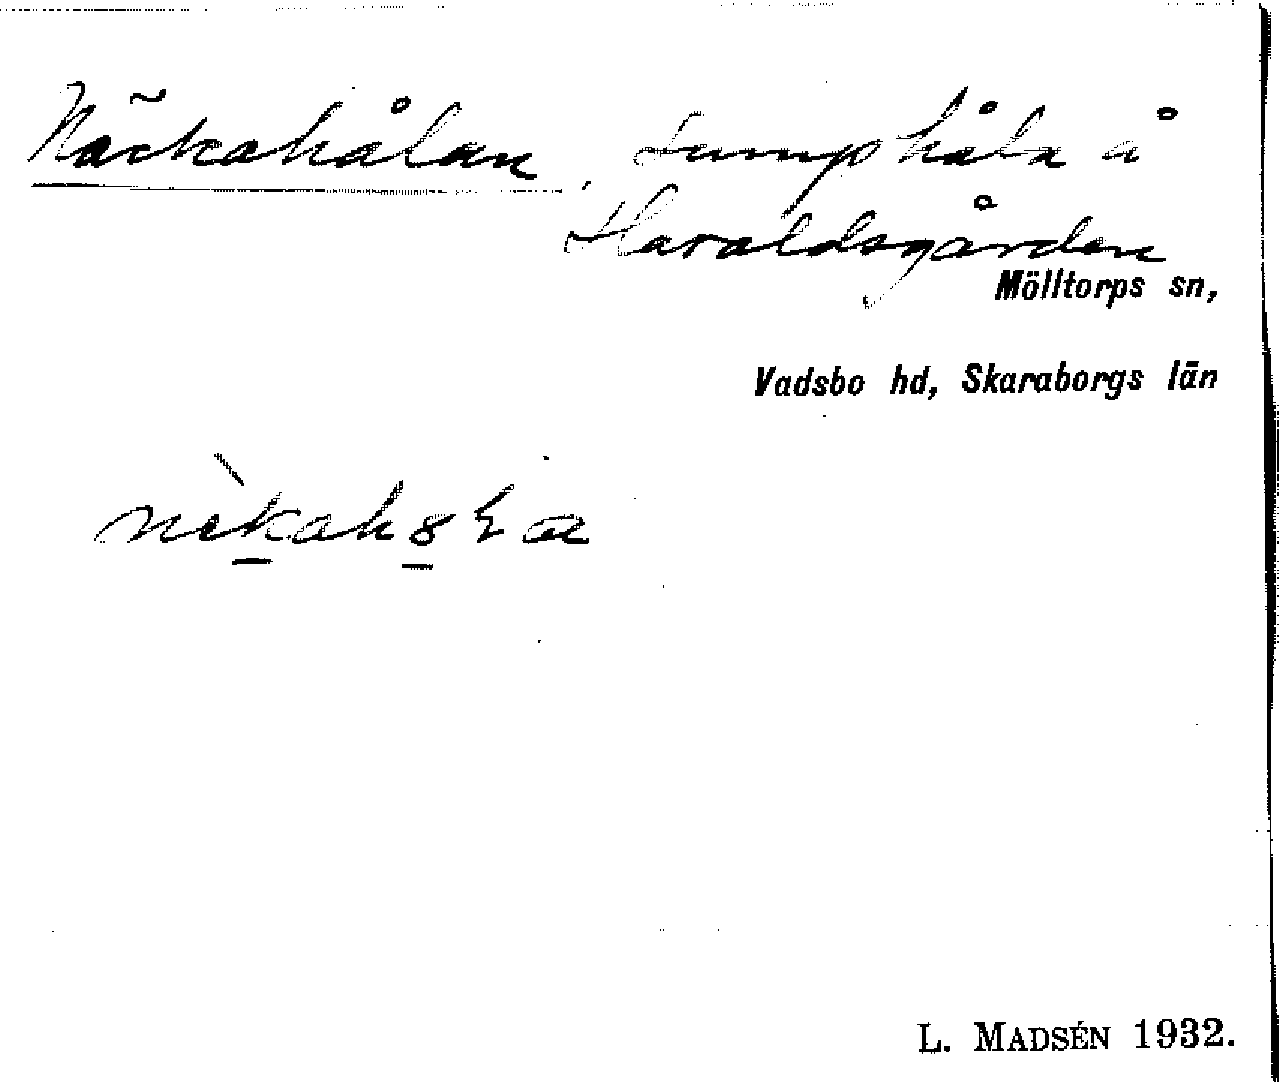 Näckahålan, Sumphåla å
Haraldsgården
Mölltorps sn,
Vadsbo hd, Skaraborgs län
L. MADSÉN 1932.